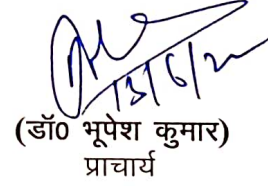 13/6/22
(डॉ0 भूपेश कुमार)
प्राचार्य